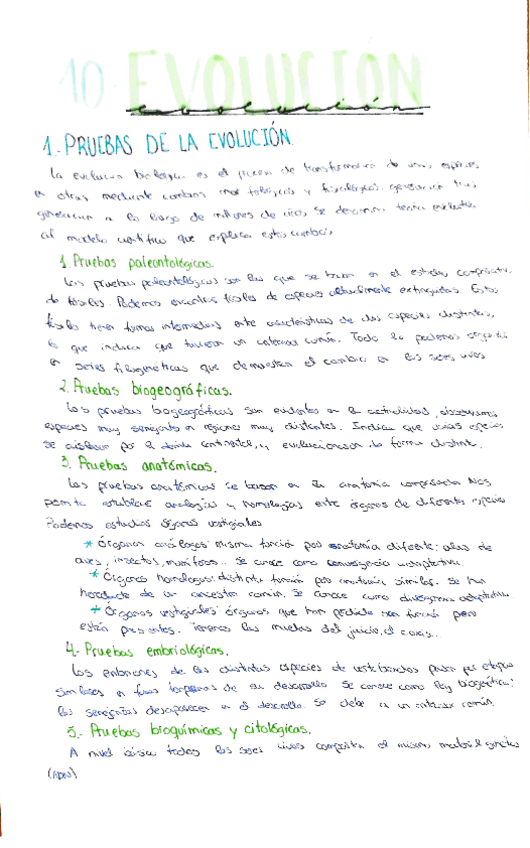 10. EVOLUCIÓN
evolución
1.-PRUEBAS DE LA EVOLUCIÓN.
La evolución biológica es el proceso de transformación de unas especies
en otras mediante cambios morfológicos y fisiológicos, generación tras
generación a lo largo de millones de años. Se denomina teoría evolutiva
al modelo científico que explica estos cambios
1. Pruebas paleontológicas.
Las pruebas paleontológicas son las que se basan en el estudio
de fósiles. Podemos encontrar fósiles de especies actualmente extinguidas. Estos
fósiles tienen formas intermedias entre características de dos especies distintas,
lo que indica que tuvieron un antecesor común. Todo lo podemos organizar
en series filogenéticas que demuestran el cambio en los seres vivos
2. Pruebas biogeográficas.
Las pruebas biogeográficas son evidentes en la actualidad, observamos
especies muy semejantes en regiones muy distantes. Indica que varias especies
se aislaron por la deriva continental, y evolucionaron de forma distinta.
3. Pruebas anatómicas.
Las pruebas anatómicas se basan en la anatomía comparada. Nos
permite establecer analogías y homologías entre órganos de diferentes especies
Podemos estudiar órganos vestigiales
* Órganos análogos: misma función pero anatomía diferente: alas de
aves, insectos, mamíferos... Se conoce como convergencia adaptativa.
* Órganos homólogos: distinta función pero anatomía similar. Se han
heredado de un ancestro común. Se conoce como divergencia adaptativa
* Órganos vestigiales: órganos que han perdido su función pero
están presentes. Tenemos las muelas del juicio, el coxis...
4.- Pruebas embriológicas.
Los embriones de las distintas especies de vertebrados pasan por etapas
similares en fases tempranas de su desarrollo. Se conoce como ley biogenética:
las semejanzas desaparecen en el desarrollo. Se debe a un antecesor común.
5.- Pruebas bioquímicas y citológicas.
A nivel básico todos los seres vivos comparten el mismo material genético
(ADN)